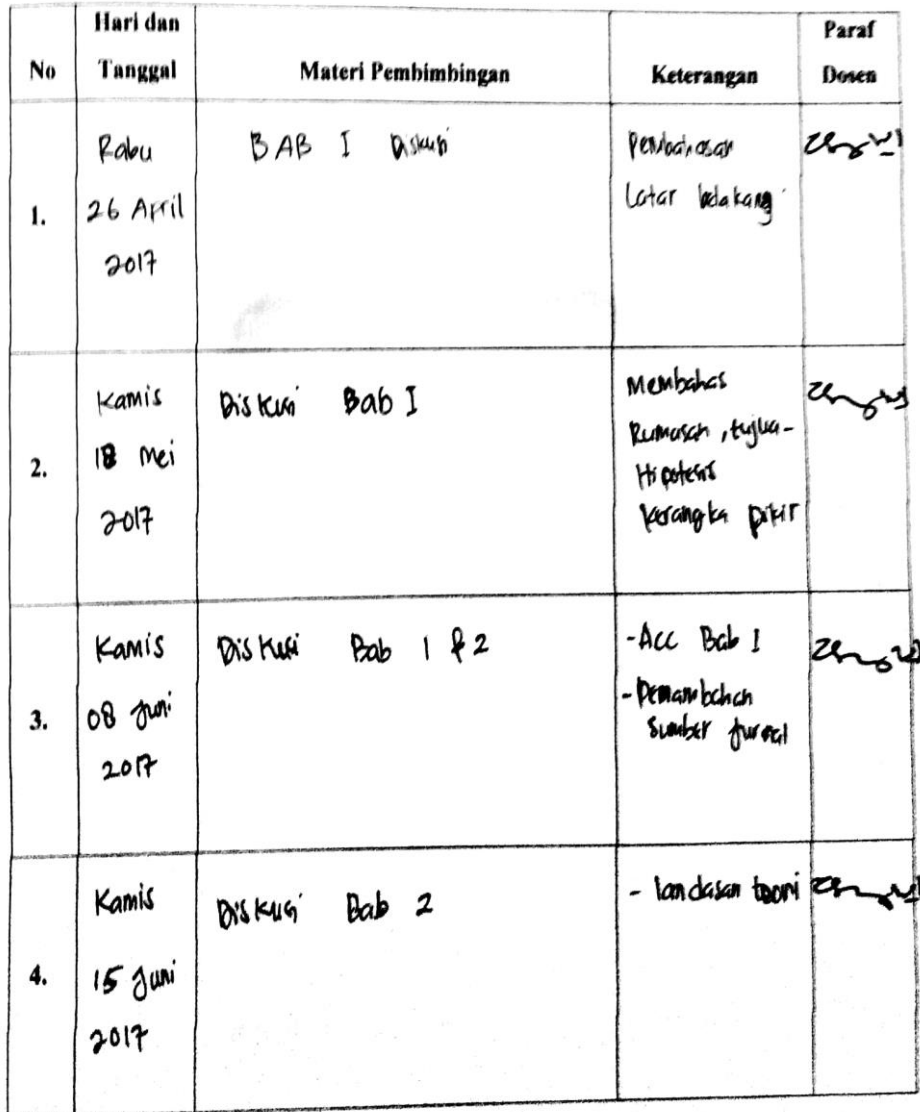 No
Hari dan
Tanggal
Materi Pembimbingan
Keterangan
Paraf
Dosen
1.
Rabu
26 April
2017
BAB I Diskusi
Pembahasan
Latar belakang
2.
Kamis
18 Mei
2017
Diskusi Bab I
Membahas
Rumusan, tujua-
Hipotesis
kerangka pikir
3.
Kamis
08 Juni
2017
Diskusi Bab 1 & 2
- Acc Bab I
- Penambahan
Sumber Jurnal
4.
Kamis
15 Juni
2017
Diskusi Bab 2
- landasan teori